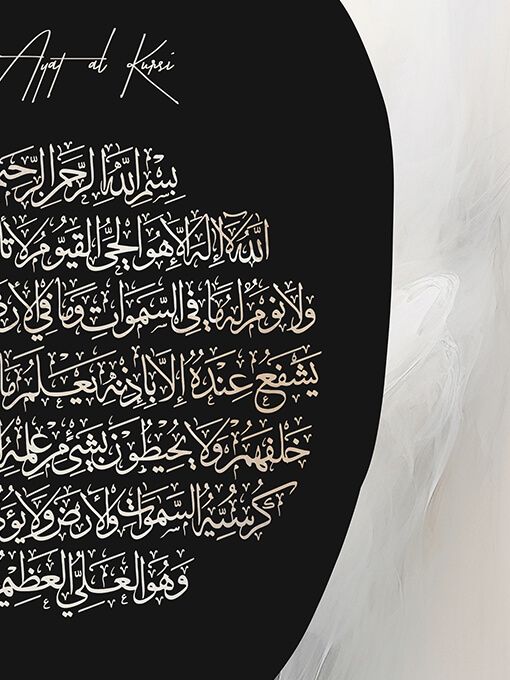 Ayat al Kursi
بِسْمِ اللَّهِ الرَّحْمَنِ الرَّحِيمِ
اللَّهُ لَا إِلَهَ إِلَّا هُوَ الْحَيُّ الْقَيُّومُ لَا
وَلَا نَوْمٌ لَهُ مَا فِي السَّمَوَاتِ وَمَا فِي
يَشْفَعُ عِنْدَهُ إِلَّا بِإِذْنِهِ يَعْلَمُ مَا
خَلْفَهُمْ وَلَا يُحِيطُونَ بِشَيْءٍ مِنْ عِلْمِهِ
كُرْسِيُّهُ السَّمَوَاتِ وَالْأَرْضَ وَلَا
وَهُوَ الْعَلِيُّ الْعَظِيمُ